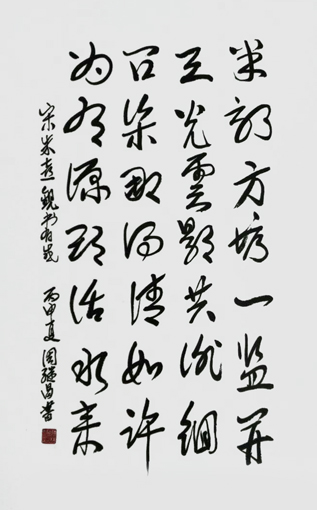 半畝方塘一监开
天光雲影共徘徊
问渠那得清如许
为有源头活水来
宋朱熹觀书有感 丙申夏周继昌書